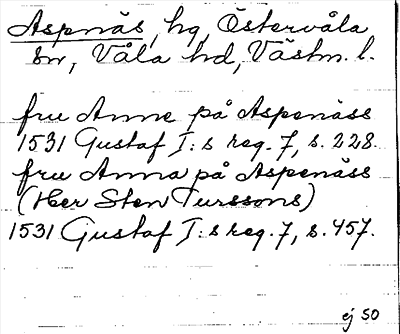 Aspnäs, hg, Östervåla
sn, Våla hd, Västm. l.
fru Anne på Aspenäss
1531 Gustaf I:s reg. 7, s. 228.
fru Anna på Aspenäss
(Her Sten Turssons)
1531 Gustaf I:s reg. 7, s. 457.
ej SO